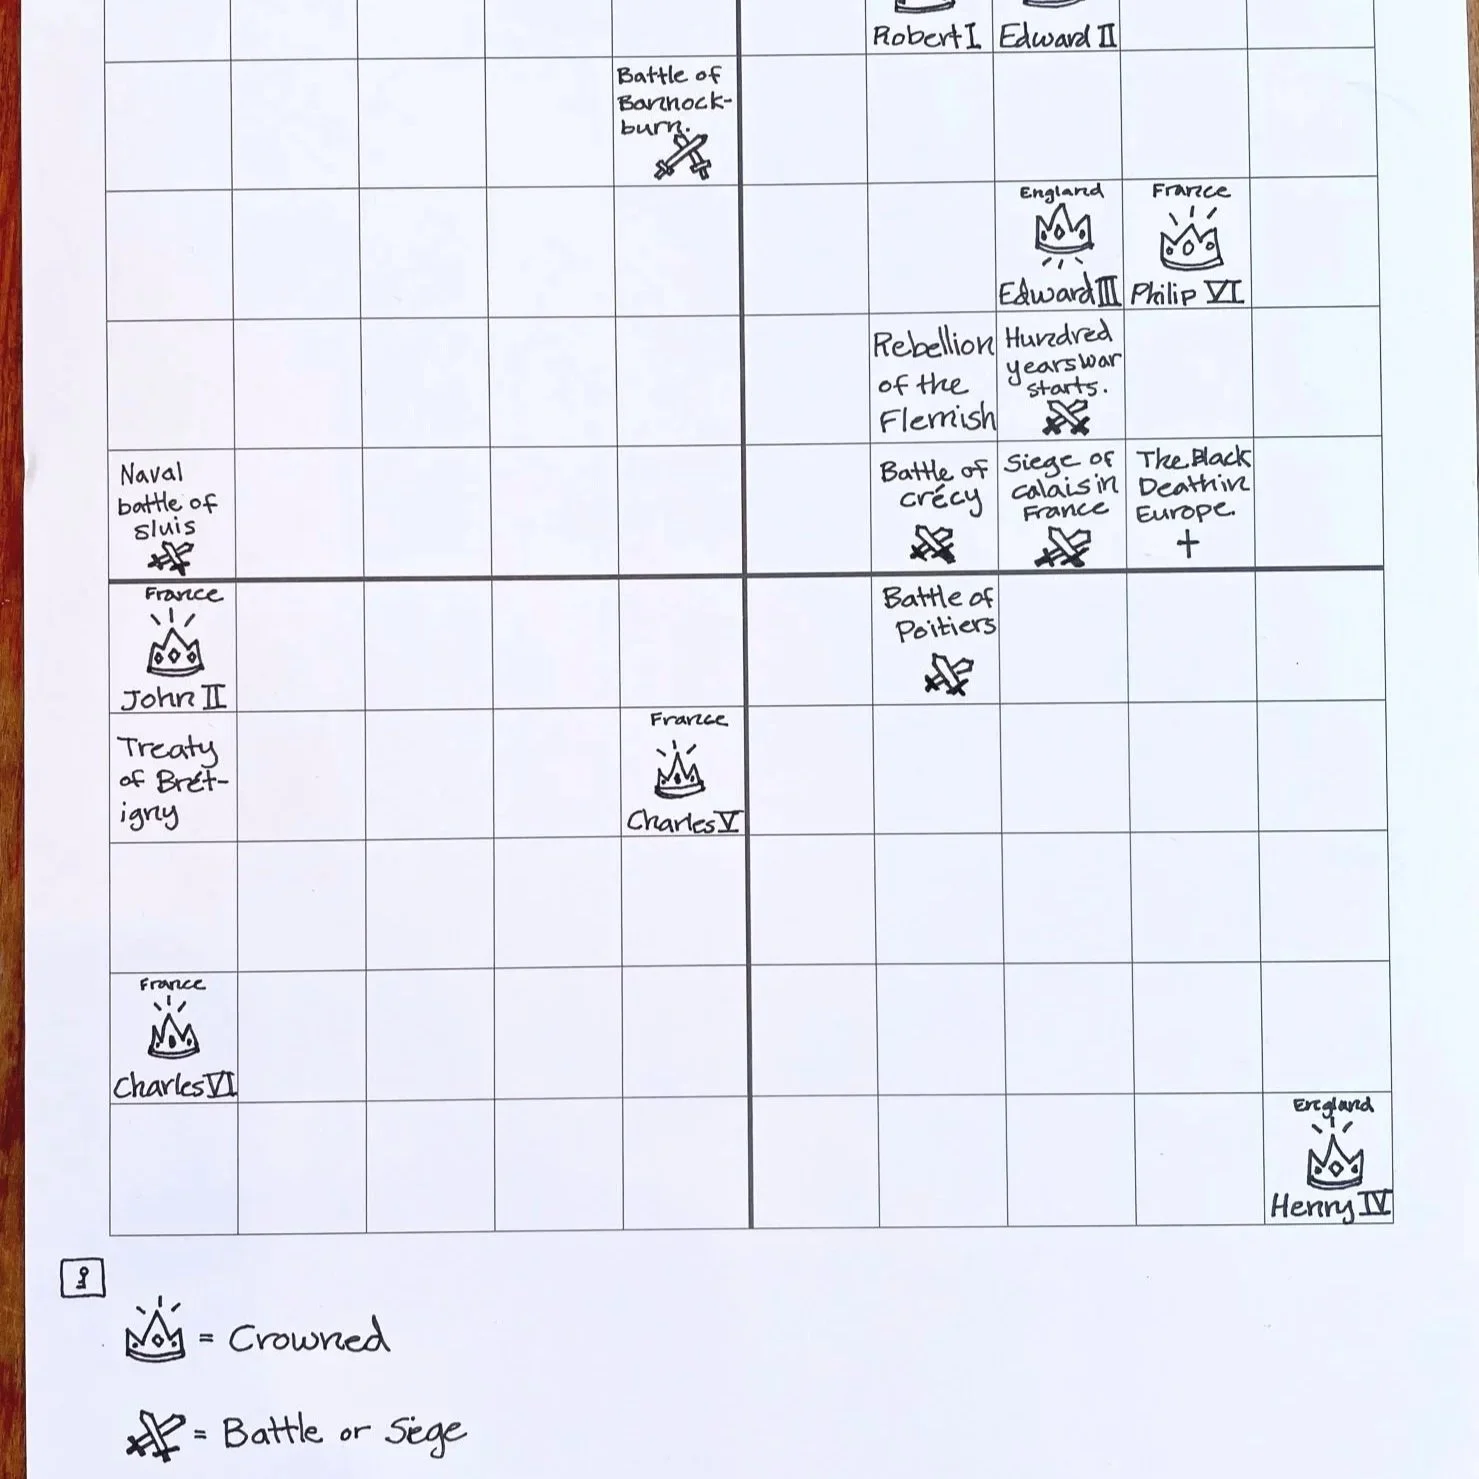 Robert I
Edward II
Battle of
Bannock-
burn.
England
Edward III
France
Philip VI
Rebellion
of the
Flemish
Hundred
years war
starts.
Naval
battle of
sluis
Battle of
crécy
Siege of
calais in
France
The Black
Death in
Europe.
France
John II
Battle of
Poitiers
Treaty
of Brét-
igny
France
Charles V
France
Charles VI
England
Henry IV
= Crowned
= Battle or Siege